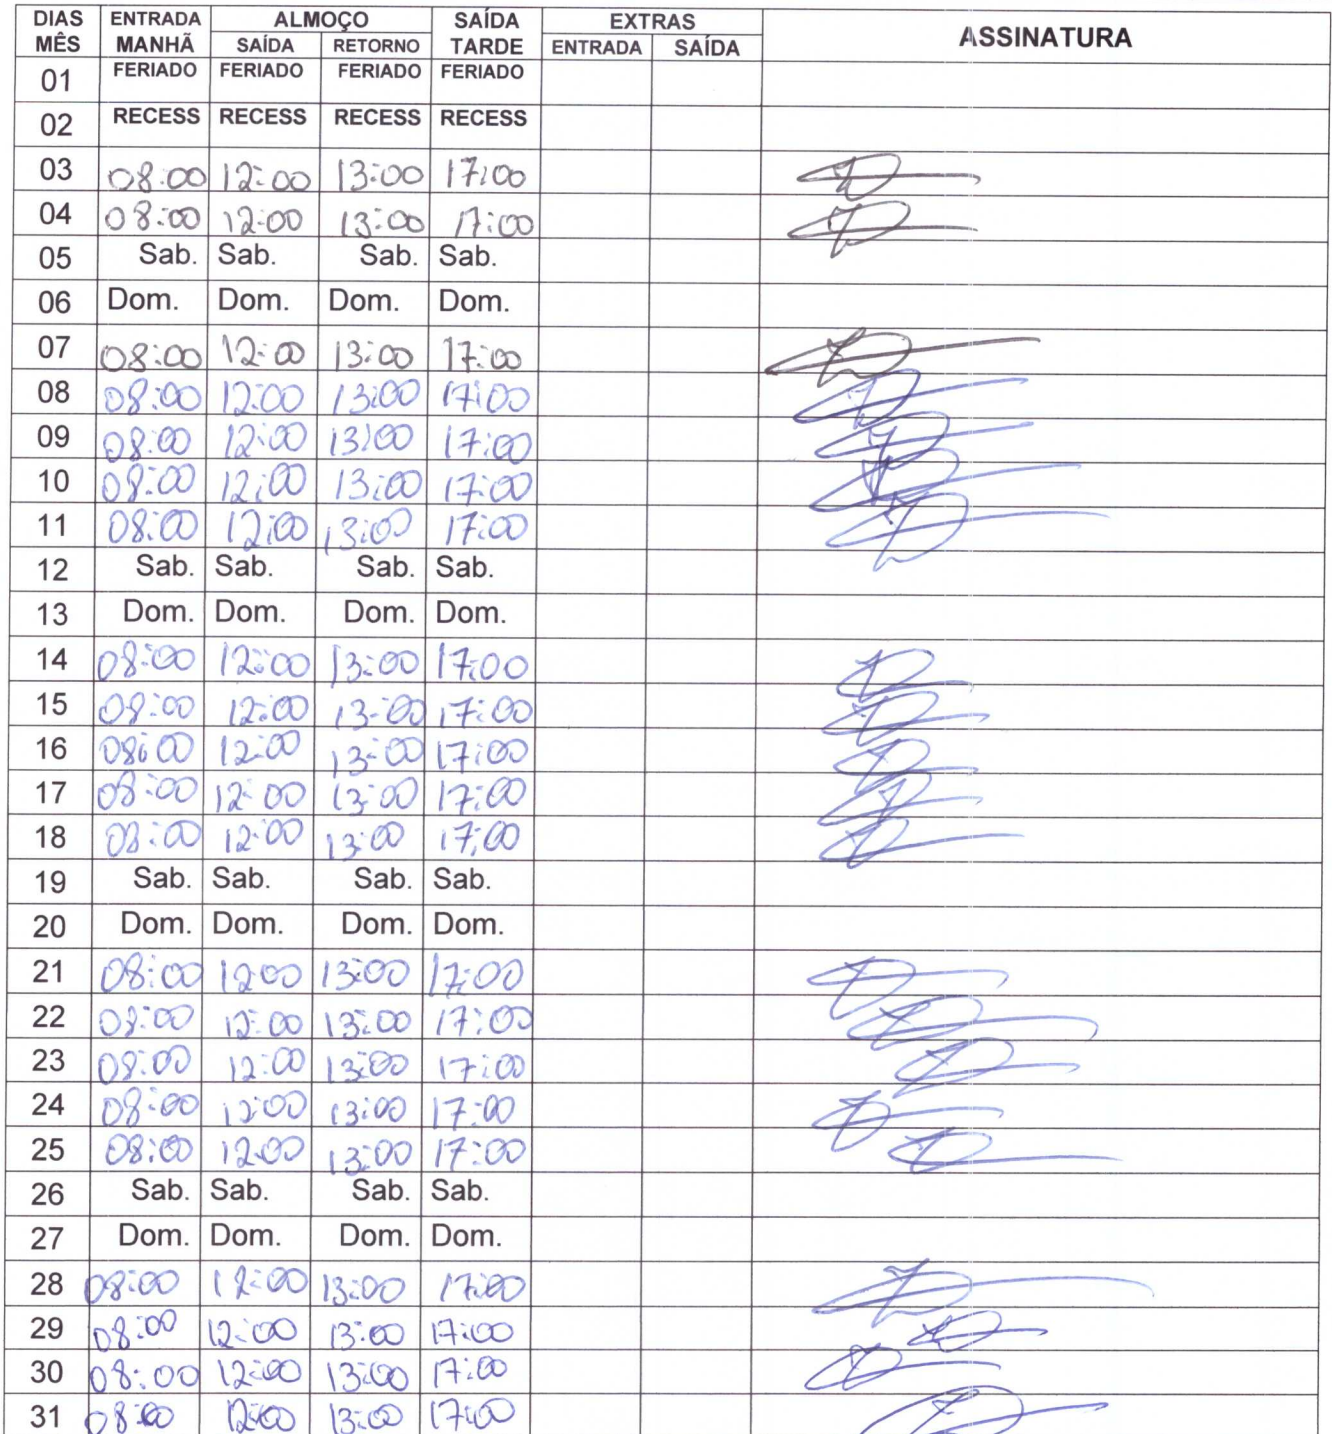 DIAS MÊS ENTRADA MANHÃ ALMOÇO SAÍDA RETORNO SAÍDA TARDE EXTRAS ENTRADA SAÍDA ASSINATURA
01 FERIADO FERIADO FERIADO FERIADO
02 RECESS RECESS RECESS RECESS
03 08:00 12:00 13:00 17:00
04 08:00 12:00 13:00 17:00
05 Sab. Sab. Sab. Sab.
06 Dom. Dom. Dom. Dom.
07 08:00 12:00 13:00 17:00
08 08:00 12:00 13:00 17:00
09 08:00 12:00 13:00 17:00
10 08:00 12:00 13:00 17:00
11 08:00 12:00 13:00 17:00
12 Sab. Sab. Sab. Sab.
13 Dom. Dom. Dom. Dom.
14 08:00 12:00 13:00 17:00
15 08:00 12:00 13:00 17:00
16 08:00 12:00 13:00 17:00
17 08:00 12:00 13:00 17:00
18 08:00 12:00 13:00 17:00
19 Sab. Sab. Sab. Sab.
20 Dom. Dom. Dom. Dom.
21 08:00 12:00 13:00 17:00
22 08:00 12:00 13:00 17:00
23 08:00 12:00 13:00 17:00
24 08:00 12:00 13:00 17:00
25 08:00 12:00 13:00 17:00
26 Sab. Sab. Sab. Sab.
27 Dom. Dom. Dom. Dom.
28 08:00 12:00 13:00 17:00
29 08:00 12:00 13:00 17:00
30 08:00 12:00 13:00 17:00
31 08:00 12:00 13:00 17:00